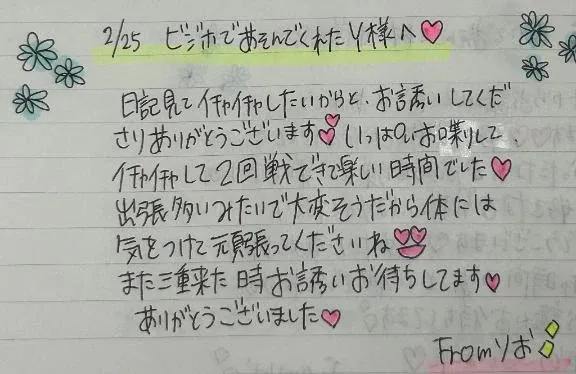 2/25 ビジホであそんでくれたY様へ♡
日記見てイチャイチャしたいからと、お誘いしてくだ
さりありがとうございます♡いっぱいお喋りして、
イチャイチャして2回戦できて楽しい時間でした♡
出張多いみたいで大変そうだから体には
気をつけて頑張ってくださいね
また三重来た時お誘いお待ちしてます♡
ありがとうございました♡
Fromりお